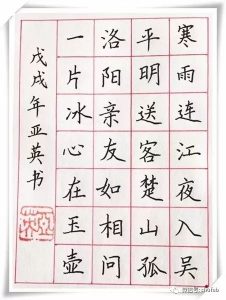 寒雨连江夜入吴
平明送客楚山孤
洛阳亲友如相问
一片冰心在玉壶
戊戌年亚英书